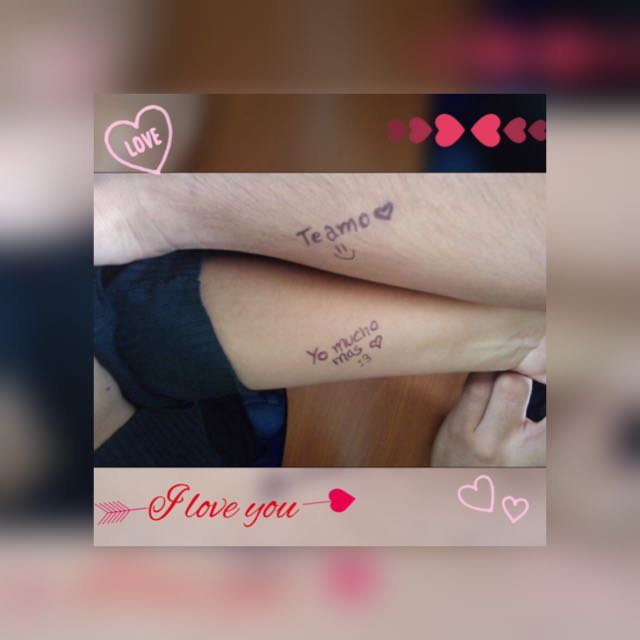 LOVE
Te amo ♥
:)
Yo mucho
mas ♡
:3
I love you